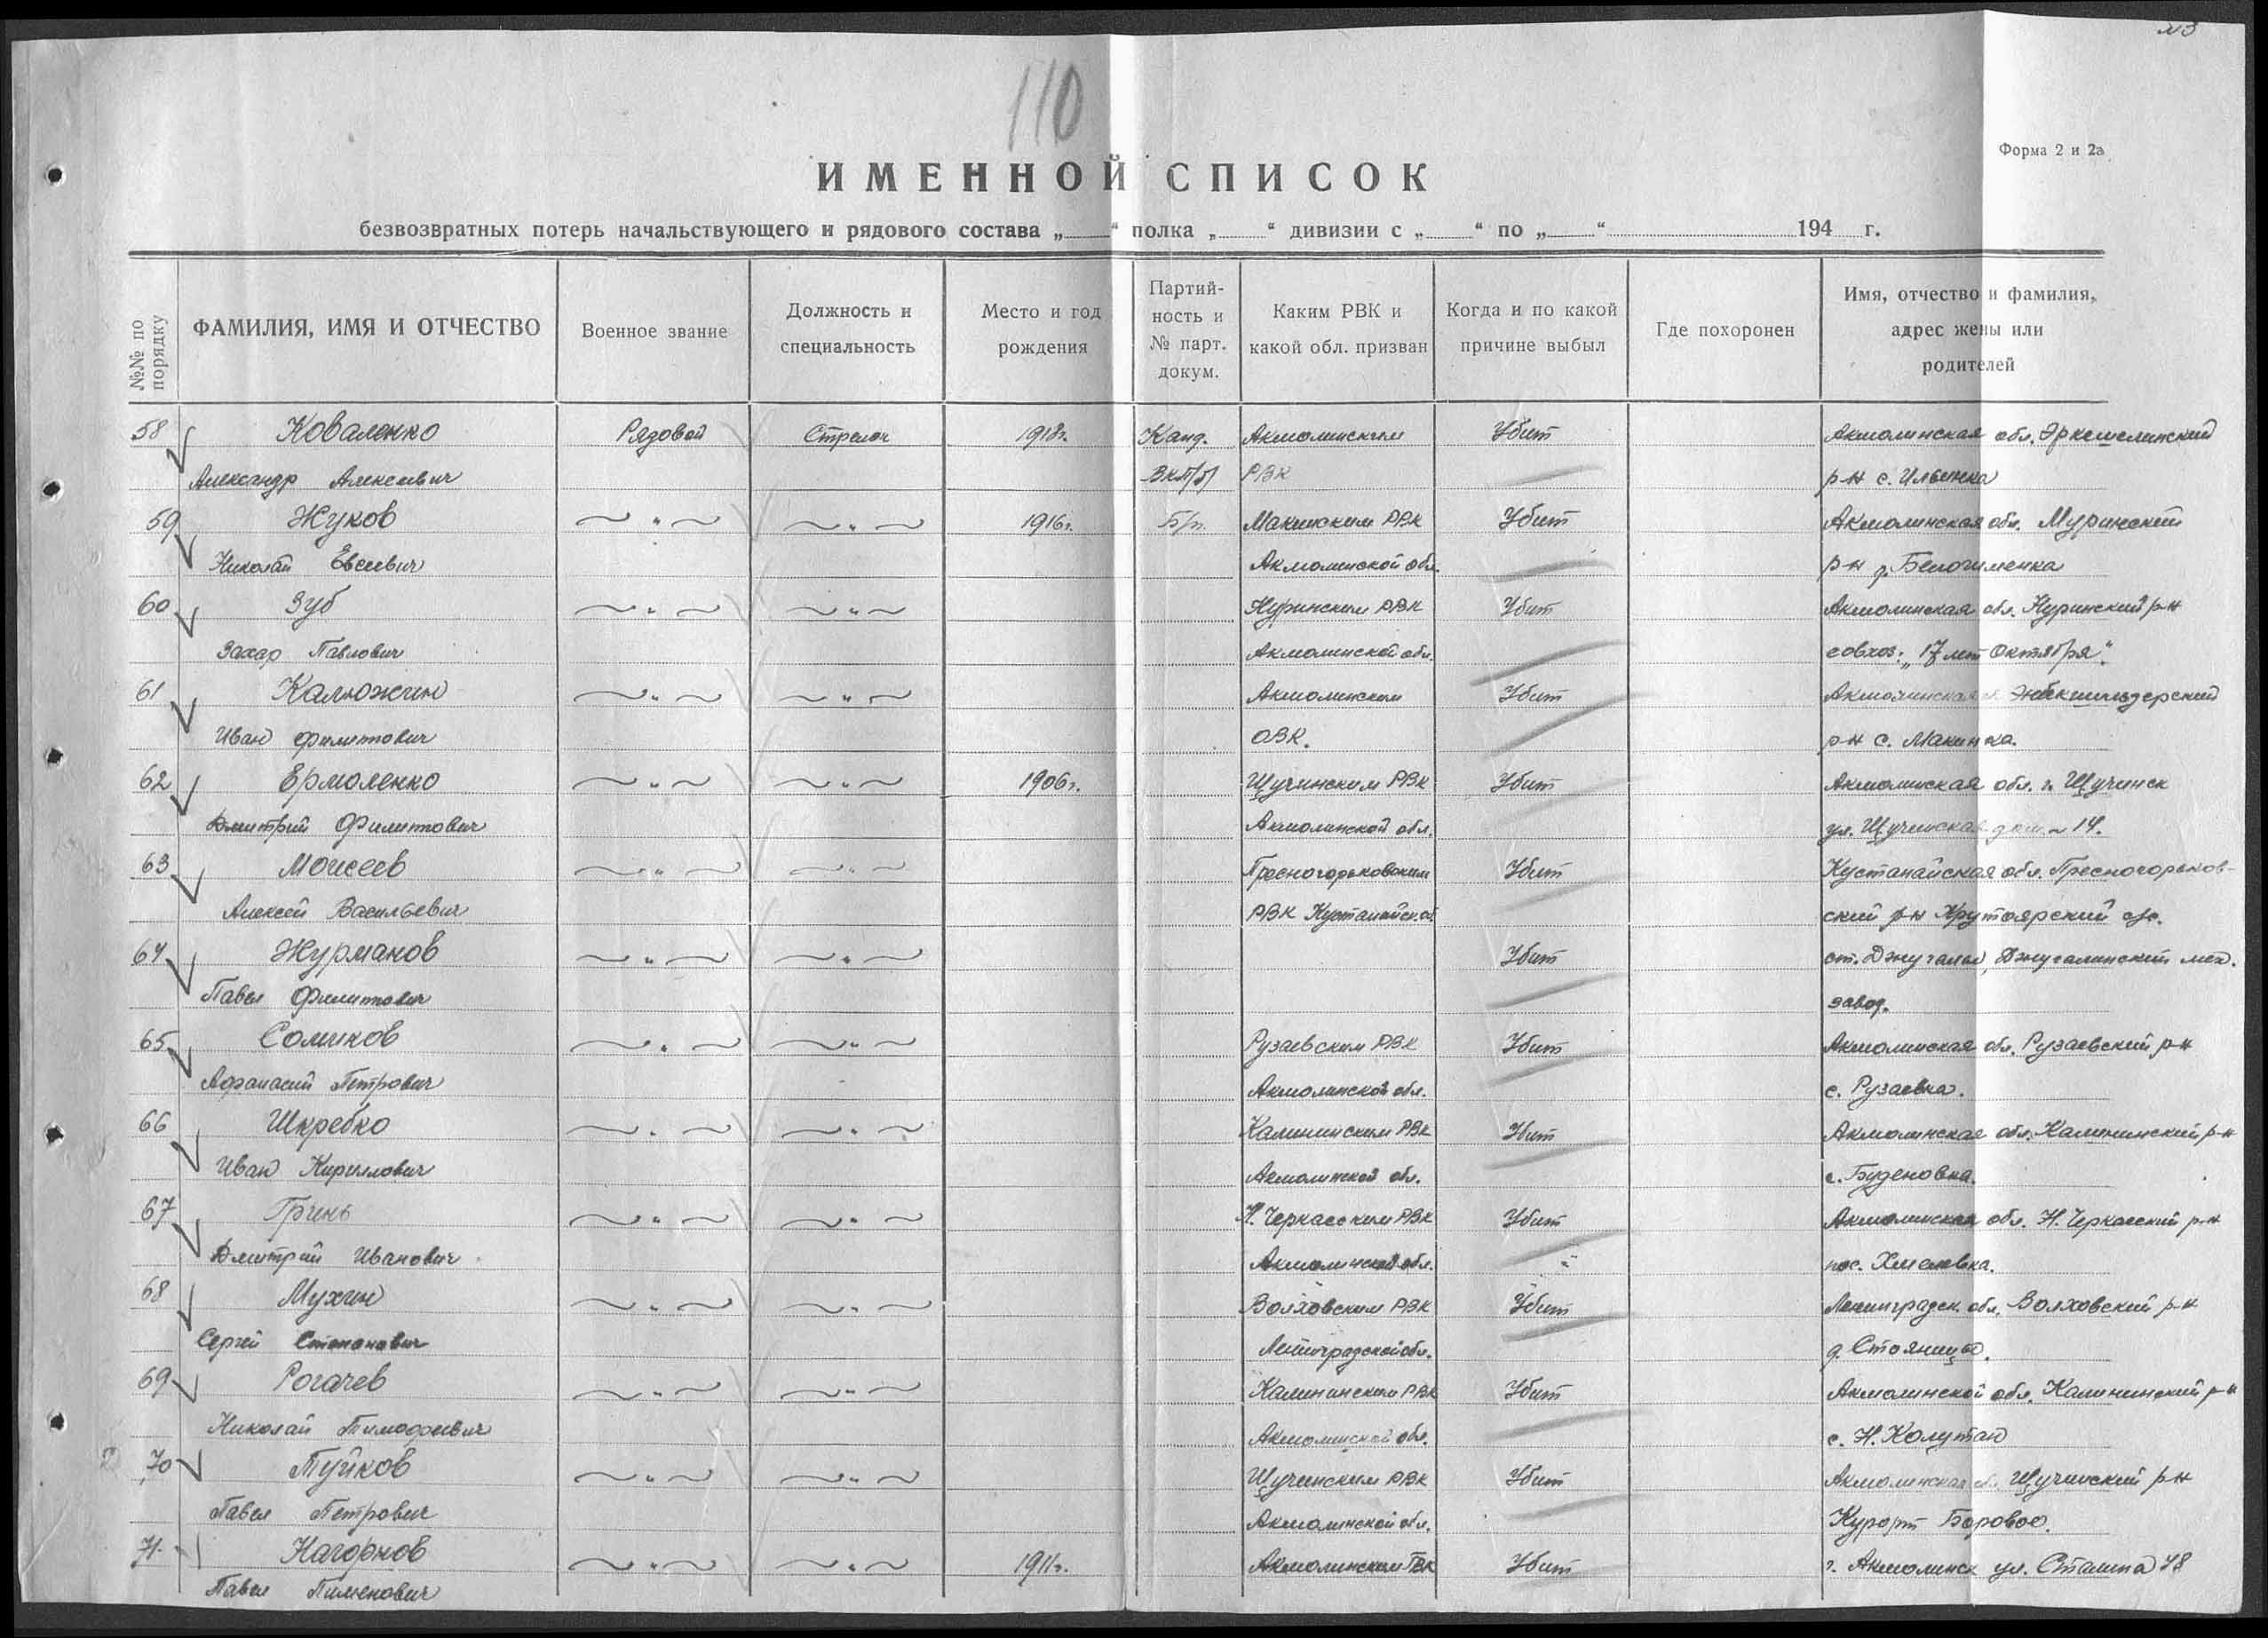 110
Форма 2 и 2а
ИМЕННОЙ СПИСОК
безвозвратных потерь начальствующего и рядового состава „ “ полка „ “ дивизии с „ “ по „ “ 194 г.
№№ по порядку
ФАМИЛИЯ, ИМЯ И ОТЧЕСТВО
Военное звание
Должность и специальность
Место и год рождения
Партийность и № парт. докум.
Каким РВК и какой обл. призван
Когда и по какой причине выбыл
Где похоронен
Имя, отчество и фамилия, адрес жены или родителей
58 Коваленко Рядовой Стрелок 1918г. Канд. Акмолинским Убит Акмолинская обл. Эркешелинский
Александр Алексеевич ВКП/б/ РВК р-н с. Ильинка
59 Жуков — „ — — „ — 1916г. Б/п. Макинским РВК Убит Акмолинская обл.
Николай Евсеевич Акмолинской обл. р-н д.
60 Зуб — „ — — „ — Нуринским РВК Убит Акмолинская обл. Нуринский р-н
Захар Павлович Акмолинской обл. совхоз: „17 лет Октября“.
61 Калюжин — „ — — „ — Акмолинским Убит Акмолинская
Иван Филиппович ОВК. р-н с. Макинка.
62 Ермоленко — „ — — „ — 1906г. Щучинским РВК Убит Акмолинская обл. г. Щучинск
Дмитрий Филиппович Акмолинской обл. ул. Щучинская дом ~ 14.
63 Моисеев — „ — — „ — Пресногорьковским Убит Кустанайская обл. Пресногорьков-
Алексей Васильевич РВК Кустанайск. об. ский р-н Крутоярский с/с.
64 Журманов — „ — — „ — Убит ст. Джусалы, Джусалинский мех.
Павел Филиппович завод.
65 Сомиков — „ — — „ — Рузаевским РВК Убит Акмолинская обл. Рузаевский р-н
Афанасий Петрович Акмолинской обл. с. Рузаевка.
66 Шкребко — „ — — „ — Калининским РВК Убит Акмолинская обл. Калининский р-н
Иван Кириллович Акмолинской обл. с. Буденовка.
67 Гринь — „ — — „ — Н. Черкасским РВК Убит Акмолинская обл. Н. Черкасский р-н
Дмитрий Иванович Акмолинской обл. пос. Хмелевка.
68 Мухин — „ — — „ — Волховским РВК Убит Ленинградск. обл. Волховский р-н
Сергей Степанович Ленинградской обл. д.
69 Рогачев — „ — — „ — Калининским РВК Убит Акмолинской обл. Калининский р-н
Николай Тимофеевич Акмолинской обл. с. Н. Колутан
70 Туйков — „ — — „ — Щучинским РВК Убит Акмолинская об. Щучинский р-н
Павел Петрович Акмолинской обл. Курорт Боровое.
71. Нагорнов — „ — — „ — 1911г. Акмолинским ГВК Убит г. Акмолинск ул. Сталина 48
Павел Пименович